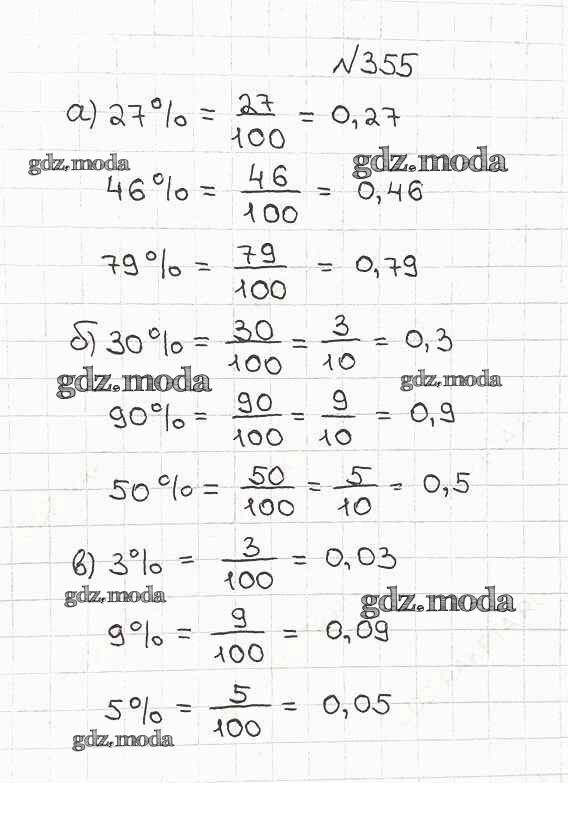 №355
а) 27% = 27/100 = 0,27
gdz.moda gdz.moda
46% = 46/100 = 0,46
79% = 79/100 = 0,79
б) 30% = 30/100 = 3/10 = 0,3
gdz.moda gdz.moda
90% = 90/100 = 9/10 = 0,9
50% = 50/100 = 5/10 = 0,5
в) 3% = 3/100 = 0,03
gdz.moda gdz.moda
9% = 9/100 = 0,09
5% = 5/100 = 0,05
gdz.moda